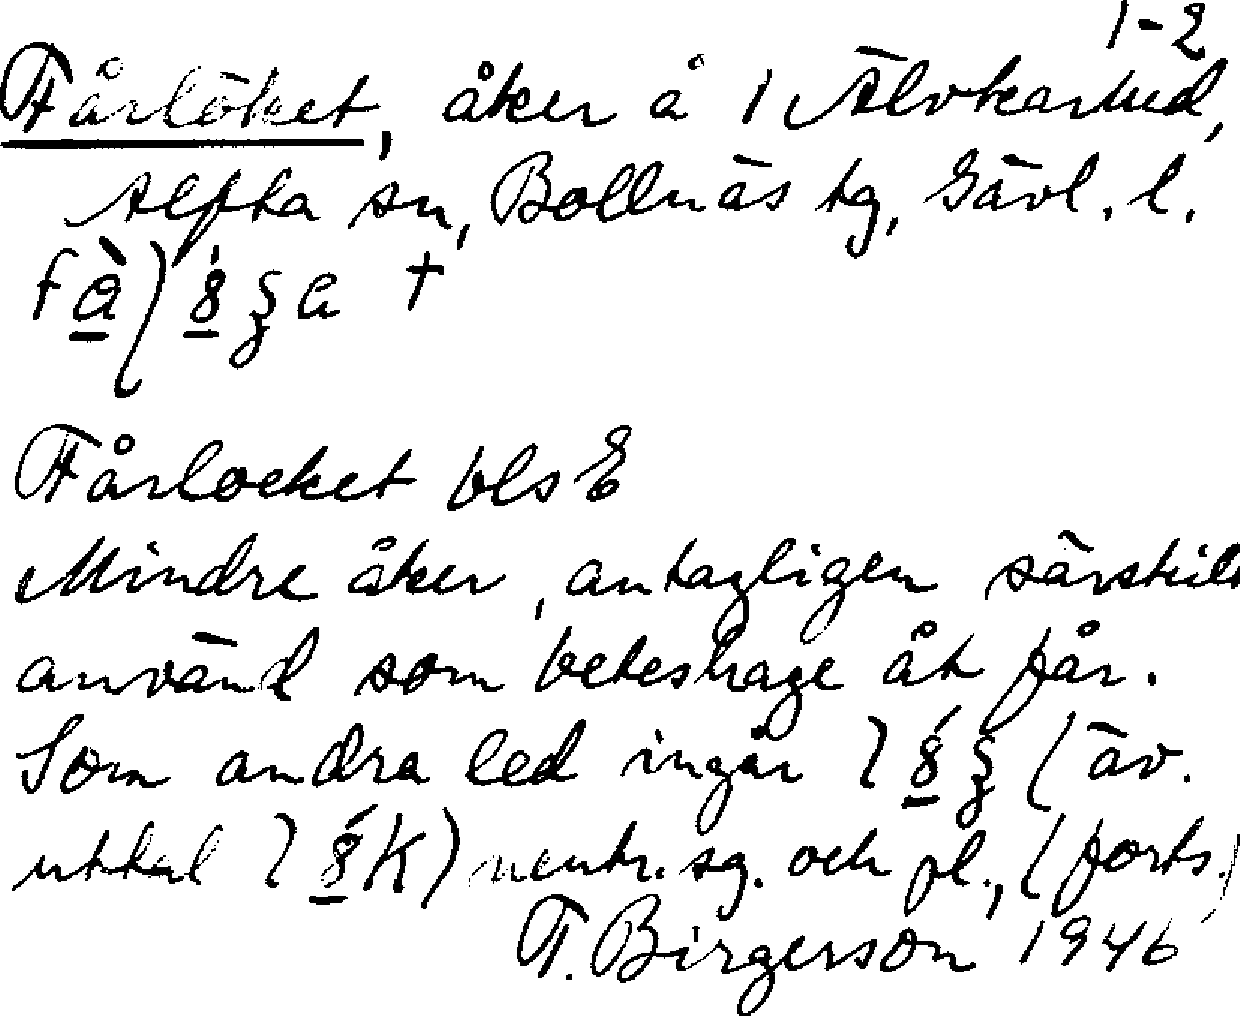 1-2
Fårlöket, åker å 1 Älvkarhed,
Alfta sn, Bollnäs tg, Gävl. l.
Fårlocket bls E
Mindre åker, antagligen särskilt
använd som beteshage åt får.
Som andra led ingår (äv.
uttal neutr. sg. och pl., (forts.)
T. Birgerson 1946